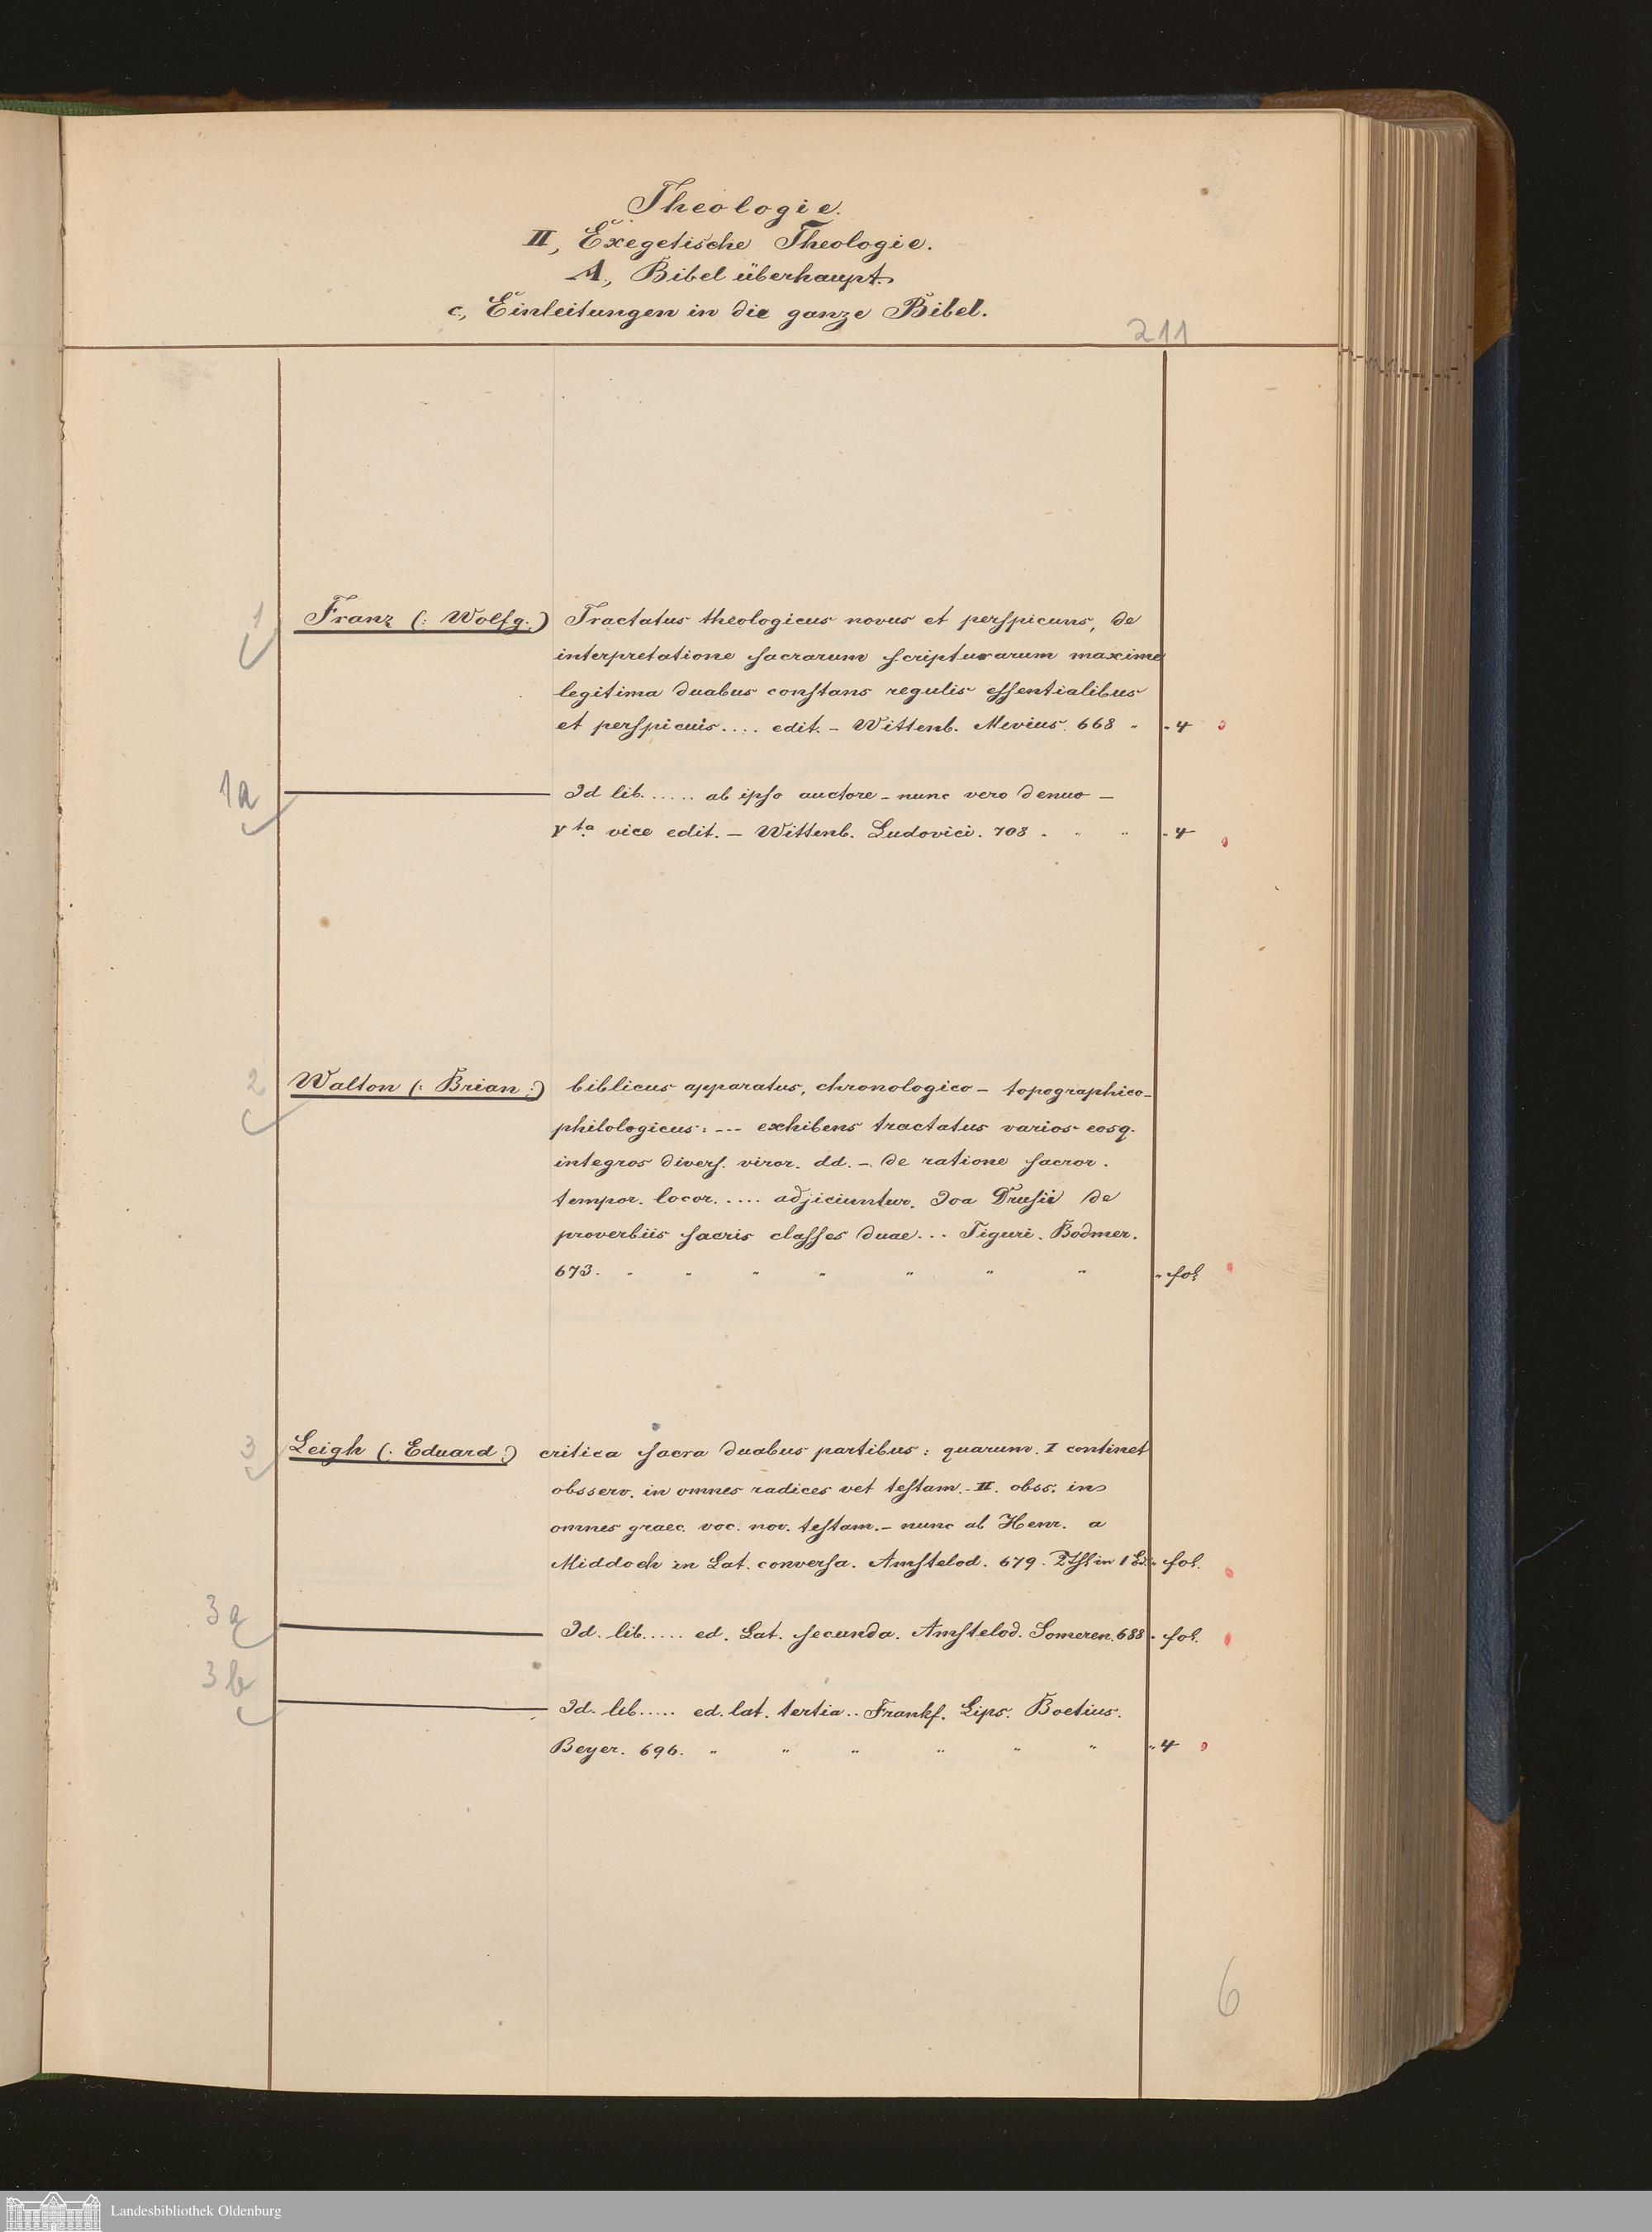 Theologie.
II, Exegetische Theologie.
A., Bibel überhaupt.
c, Einleitungen in die ganze Bibel.
211
1 Franz (: Wolfg:) Tractatus theologicus novus et perspicuus, de
interpretatione sacrarum scripturarum maxime
legitima duabus constans regulis essentialibus
et perspicuis.... edit. - Wittenb. Mevius. 668 " " 4
1a Id lib...... ab ipso auctore - nunc vero denuo -
Vta vice edit. - Wittenb. Ludovici. 708 . " " " 4
2 Walton (: Brian :) biblicus apparatus, chronologico - topographico-
philologicus: --- exhibens tractatus varios eosq.
integros divers. viror. dd. - de ratione sacror.
tempor. locor..... adjiciuntur. Joa Drusii de
proverbiis sacris classes duae... Tiguri. Bodmer.
673. " " " " " " " " fol
3 Leigh (: Eduard :) critica sacra duabus partibus: quarum. I continet
obsserv. in omnes radices vet testam. - II. obss. in
omnes graec. voc. nov. testam. - nunc ab Henr. a
Middoch in Lat. conversa. Amstelod. 679. 2 Thl in 1 Bd. " fol.
3a Id. lib..... ed. Lat. secunda. Amstelod. Someren. 688 " fol.
3b Id. lib..... ed. lat. tertia.. Frankf. Lips. Boetius.
Beyer. 696. " " " " " " " 4
6
Landesbibliothek Oldenburg